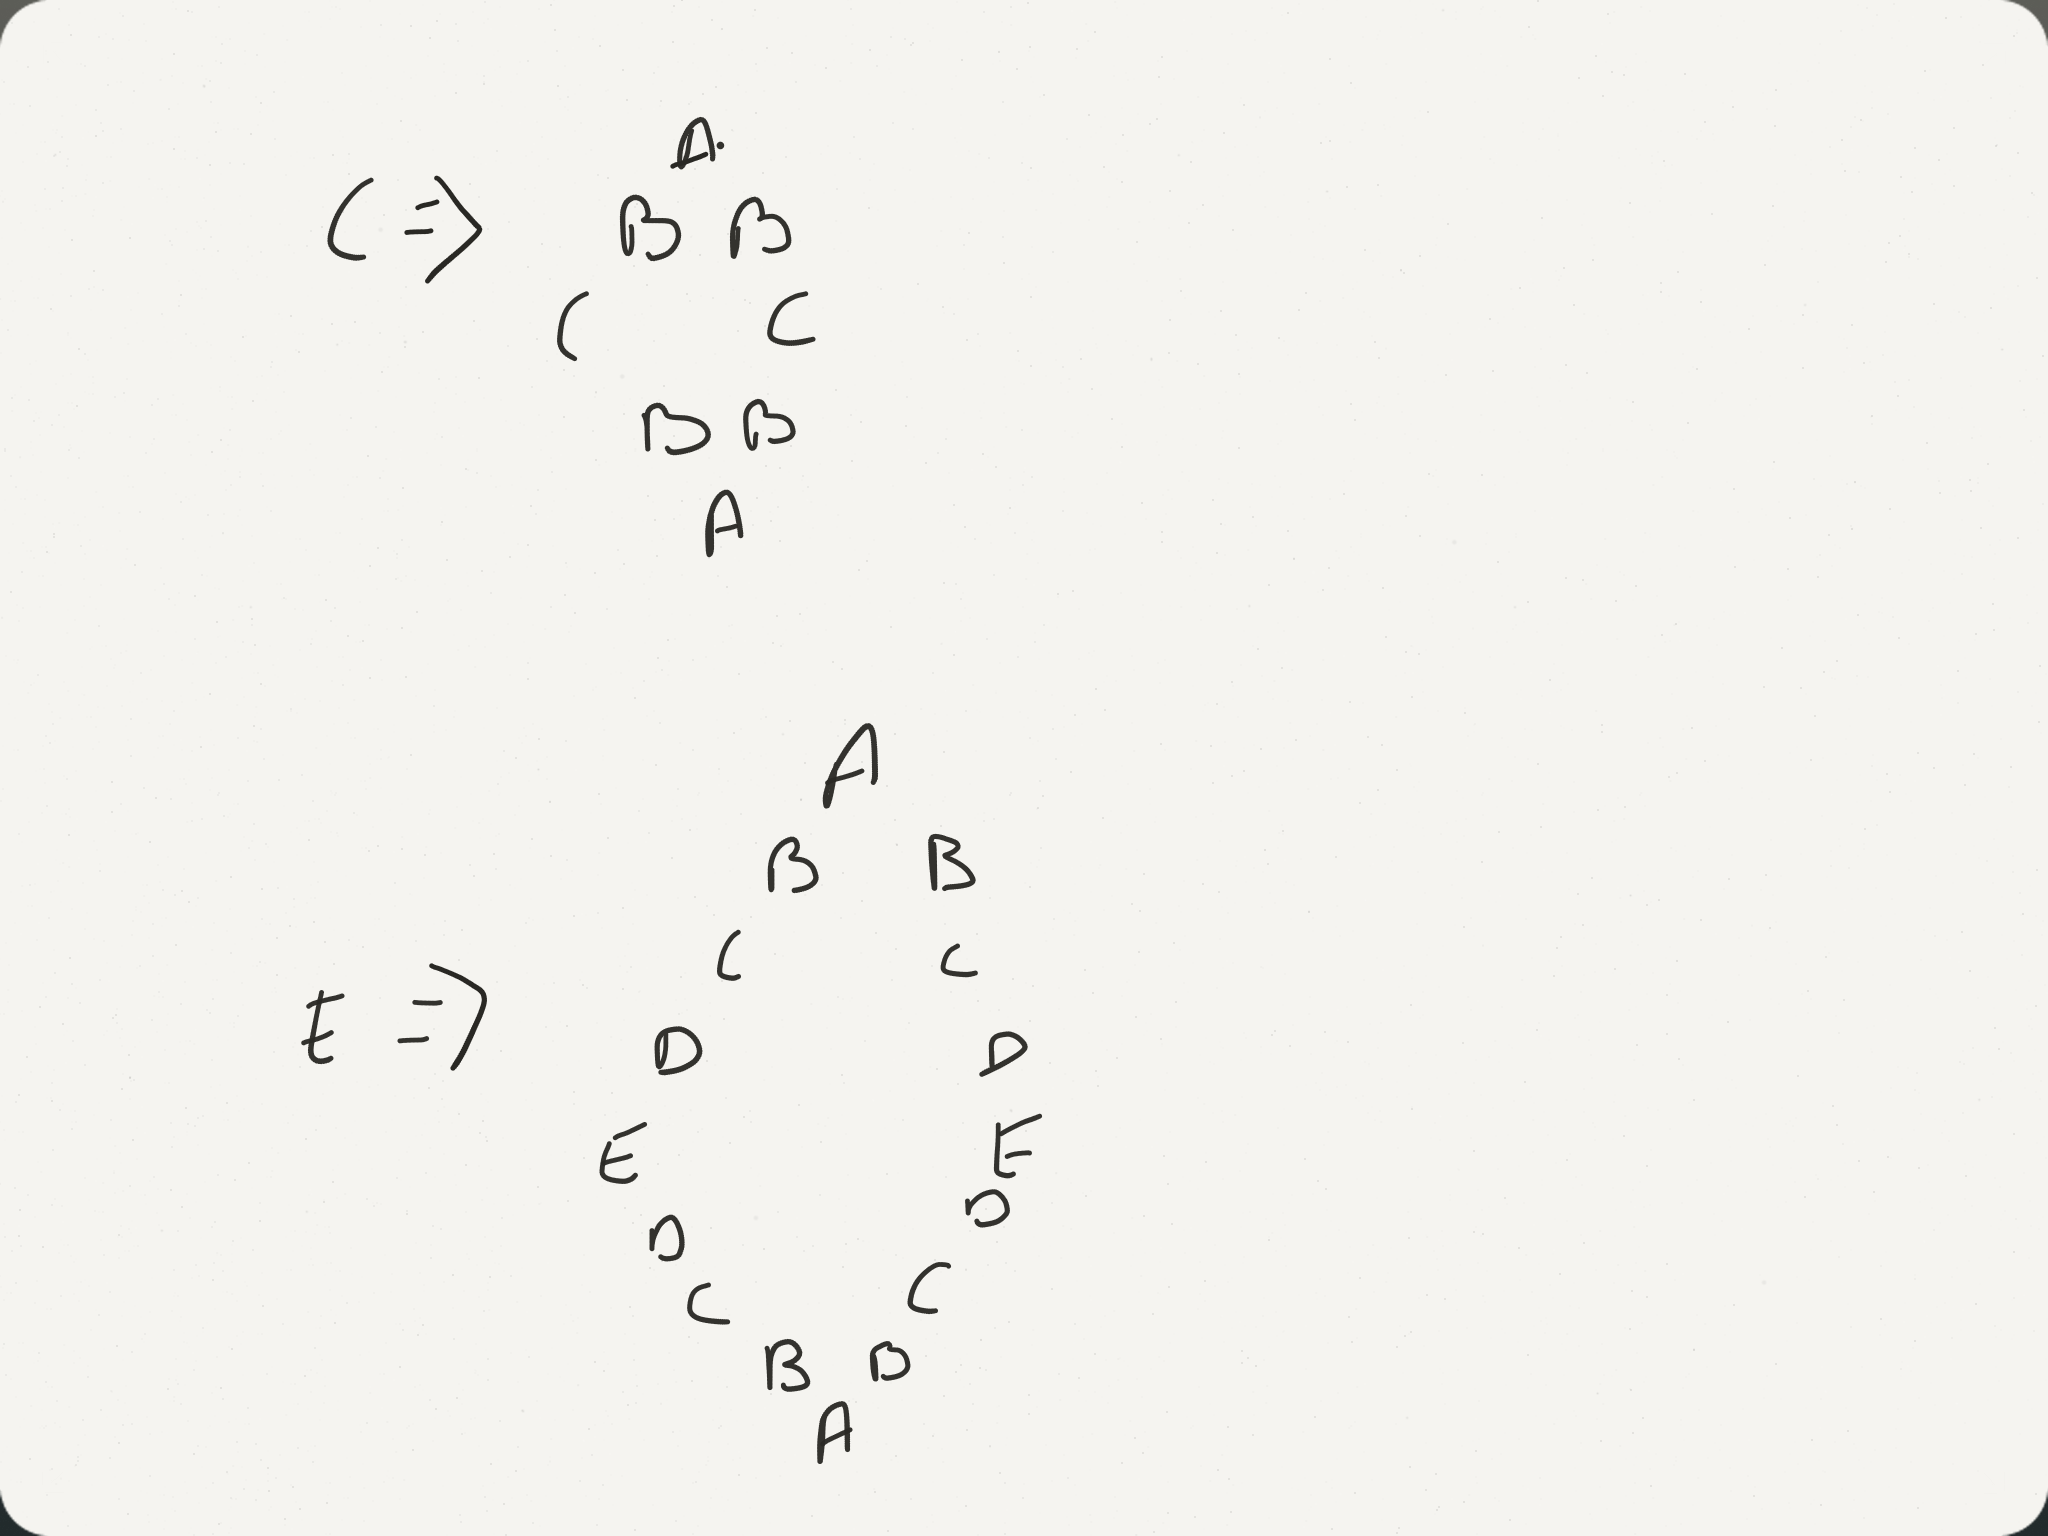 A.
C => B B
C C
B B
A
A
B B
C C
E => D D
E E
D D
C C
B B
A